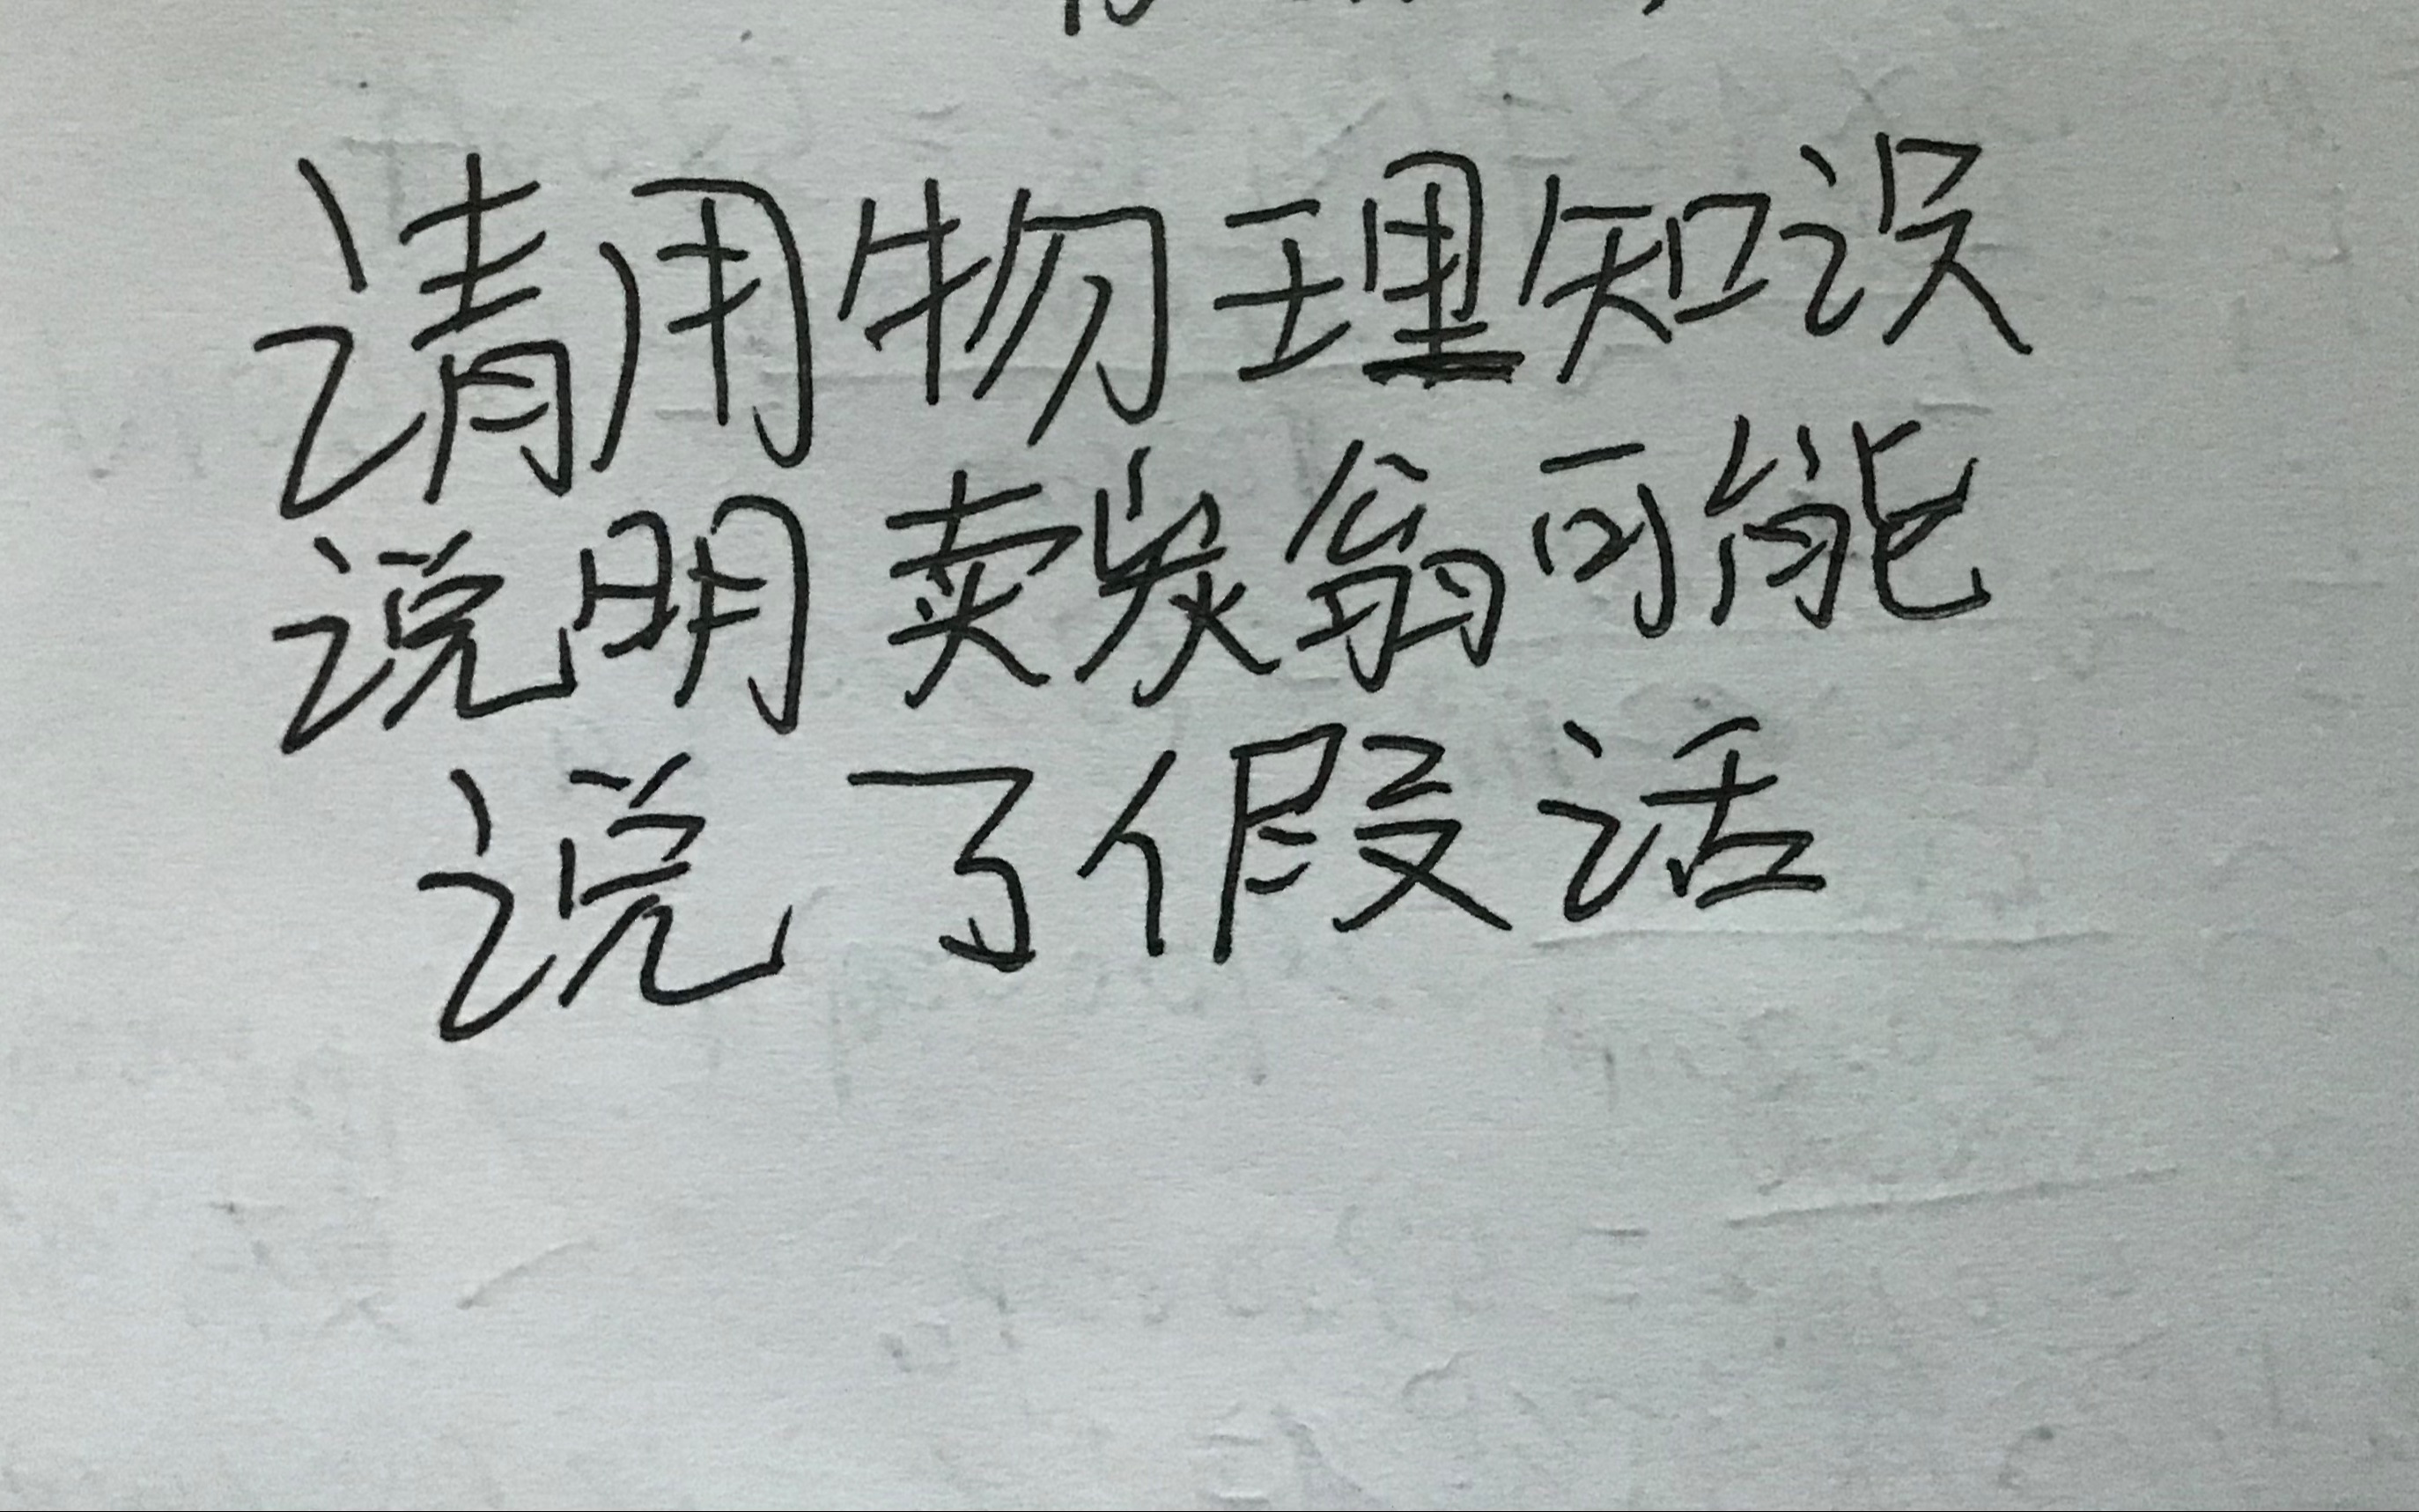 请用物理知识
说明卖炭翁可能
说了假话